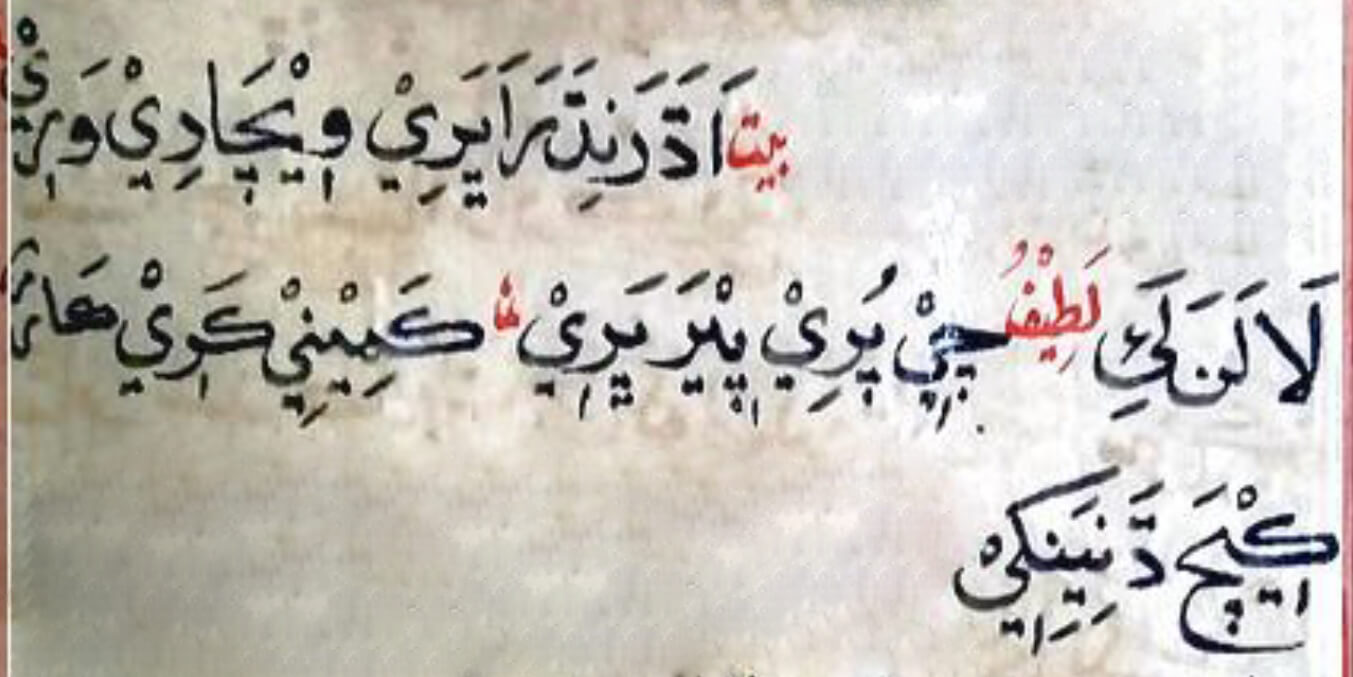 بيت اَدَّرَ نِدَّرَ اَپَرِيْ وِيْچَادِيْ وَرِيْ
لَالَنَ لَئِ لَطِيْفُ چِيْ پُرِيْ پِيْرَ پَرِيْ كَمِيْنِيْ كَرِيْ
كِيْچَ دَّنِيَنِكِيْ